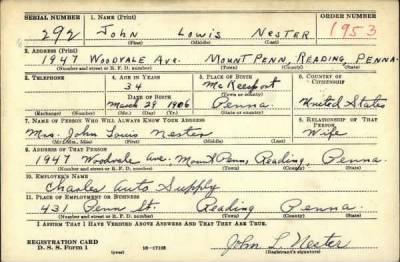 SERIAL NUMBER 1. NAME (Print) ORDER NUMBER
292 JOHN LOWIS NESTER 1953
(First) (Middle) (Last)
2. ADDRESS (Print)
1947 WOODVALE AVE. MOUNT PENN, READING, PENNA.
(Number and street or R. F. D. number) (Town) (County) (State)
3. TELEPHONE 4. AGE IN YEARS 5. PLACE OF BIRTH 6. COUNTRY OF CITIZENSHIP
34 McKeesport
DATE OF BIRTH (Town or county)
March 29 1906 Penna. United States
(Exchange) (Number) (Mo.) (Day) (Yr.) (State or country)
7. NAME OF PERSON WHO WILL ALWAYS KNOW YOUR ADDRESS 8. RELATIONSHIP OF THAT PERSON
Mrs. John Louis Nester Wife
(Mr., Mrs., Miss) (First) (Middle) (Last)
9. ADDRESS OF THAT PERSON
1947 Woodvale Ave. Mount Penn, Reading, Penna.
(Number and street or R. F. D. number) (Town) (County) (State)
10. EMPLOYER'S NAME
Charles Auto Supply
11. PLACE OF EMPLOYMENT OR BUSINESS
431 Penn St. Reading Penna.
(Number and street or R. F. D. number) (Town) (County) (State)
I AFFIRM THAT I HAVE VERIFIED ABOVE ANSWERS AND THAT THEY ARE TRUE.
REGISTRATION CARD John L. Nester
D. S. S. Form 1 (over) 16—17105 (Registrant's signature)